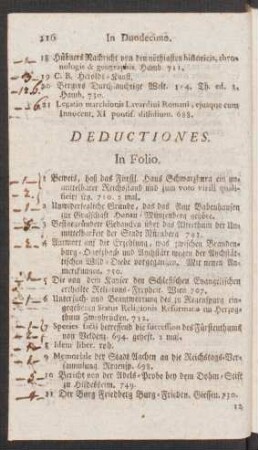 216 In Duodecimo.
18 Hübners Nachricht von den nöthigsten historicis, chro-
nologis & geographis. Hamb. 711.
19 C. B. Herolds-Kunst.
20 Bergers Durchlauchtige Welt. 1-4. Th. ed. 3.
Hamb. 730.
21 Legatio marchionis Lavardini Romam, ejusque cum
Innocent. XI pontif. dissidium. 688.
DEDUCTIONES.
In Folio.
1 Beweis, daß das Fürstl. Haus Schwarzburg ein un-
mittelbarer Reichsstand und zum voto viril. quali-
ficirt sey. 710. 2 mal.
2 Umwiderlegliche Gründe, daß das Amt Babenhausen
zur Grafschaft Hanau-Münzenberg gehöre.
3 Bestgegründete Gedancken über das Alterthum der Un-
mittelbarkeit der Stadt Nürnberg. 741.
4 Antwort auf die Erzehlung, was zwischen Branden-
burg-Onolzbach und Aychstätt wegen der Aychstät-
tischen Wild-Diebe vorgegangen. Mit neuen An-
merkungen. 750.
5 Die von dem Kayser den Schlesischen Evangelischen
ertheilte Religions-Freyheit. Wien 707.
6 Untersuch- und Beantwortung des zu Regenspurg ein-
gegebenen Status Religionis Reformatae im Herzog-
thum Zweybrücken. 712.
7 Species facti betreffend die succession des Fürstenthums
von Veldenz. 694. geheft. 2 mal.
8 Idem liber. rob.
9 Memoriale der Stadt Aachen an die Reichstags-Ver-
sammlung. Regensp. 698.
10 Bericht von der Adels-Probe bey dem Dohm-Stift
zu Hildesheim. 749.
11 Der Burg Friedberg Burg-Frieden. Giessen. 730.
12